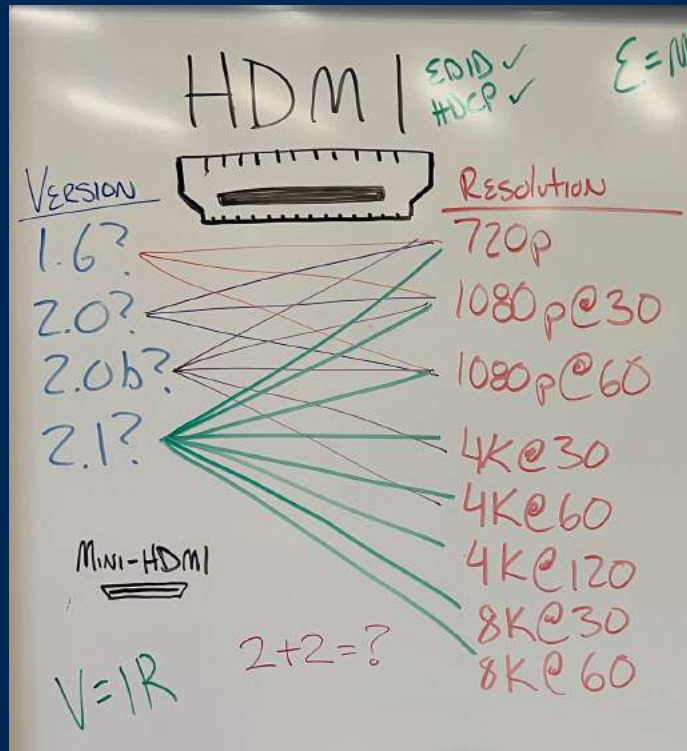 HDMI
EDID ✓
HDCP ✓
VERSION
1.6?
2.0?
2.0b?
2.1?
Resolution
720p
1080p@30
1080p@60
4K@30
4K@60
4K@120
8K@30
8K@60
MINI-HDMI
2+2=?
V=IR